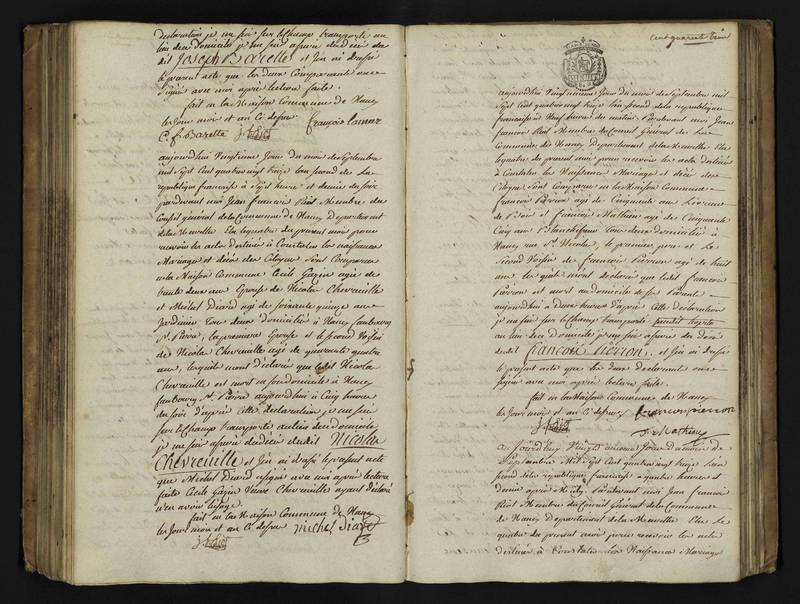 declaration je me suis sur le champ transporté au
lieu du Domicile je me suis assuré du décès du
dit Joseph Barelle et j'en ai dressé
le present acte que les deux Comparants ont
signé avec moi après lecture faite.
fait en la Maison Commune de Nancy
les Jour mois et an C. dessus
françois lamar
C. f. Barette
aujourdhui Vingtieme Jour du mois de Septembre
mil Sept Cent quatre vingt treize l'an second de La
republique française à Sept heures et demie du soir
pardevant moi Jean francois Membre du
Conseil général de la Commune de Nancy Departement
de la Meurthe Elu le du present mois pour
recevoir les actes destinés à Constater les naissances
Mariages et décès des Citoyens Sont Comparus
en la Maison Commune Cecile Gazin agée de
deux ans Epouse de Nicolas Chevreuille
et Michel Diard agé de soixante quinze ans
Jardinier tous deux domiciliés à Nancy faubourg
St. Pierre, la premiere Epouse et le second Voisin
de Nicolas Chevreuille agé de quarante quatre
ans, lesquels m'ont déclaré que ledit Nicolas
Chevreuille est mort en son domicile à Nancy
faubourg St. Pierre aujourdhui à Cinq heures
du soir d'après Cette déclaration je me suis
sur le champ transporté au lieu du Domicile
je me suis assuré du décès dudit Nicolas
Chevreuille et j'en ai dressé le present acte
que Michel Diard a signé avec moi après lecture
faite Cecile Gazin Veuve Chevreuille ayant déclaré
n'en avoir l'usage.
fait en la Maison Commune de Nancy
les Jour mois et an C. dessus michel Diard
Cent quarante
aujourdhui Vingt unieme Jour du mois de Septembre mil
Sept Cent quatre vingt treize l'an second de la republique
française à neuf heures du matin Pardevant moi Jean
francois Membre du Conseil Général de La
Commune de Nancy Departement de la Meurthe Elu
le quatre du present mois pour recevoir les actes destinés
à Constater les Naissances Mariages et décès des
Citoyens Sont Comparus en la Maison Commune
françois Pierron agé de Cinquante ans
de Bois et francois Mathieu agé de Cinquante
Cinq ans Blanchisseur tous deux domiciliés à
Nancy rue St. Nicolas, le premier pere et Le
Second Voisin de françois Pierron agé de huit
ans lesquels m'ont declaré que ledit françois
Pierron est mort au domicile de ses Parents
aujourdhui à deux heures d'après Cette déclaration
je me suis sur le champ transporté
au lieu du domicile je me suis assuré du décès
dudit françois Pierron, et j'en ai dressé
le present acte que les deux declarants ont
signé avec moi après lecture faite.
fait en la Maison Commune de Nancy
les Jour mois et an C. dessus francois pierron
f. Mathieu
aujourdhuy Vingt unieme Jour du mois de
Septembre Mil Sept Cent quatre vingt treize l'an
second de la republique française à quatre heures et
demie après Midy Pardevant moi Jean francois
Membre du Conseil Général de la Commune
de Nancy Departement de la Meurthe Elu Le
quatre du present mois pour recevoir les actes
destinés à Constater les Naissances Mariages